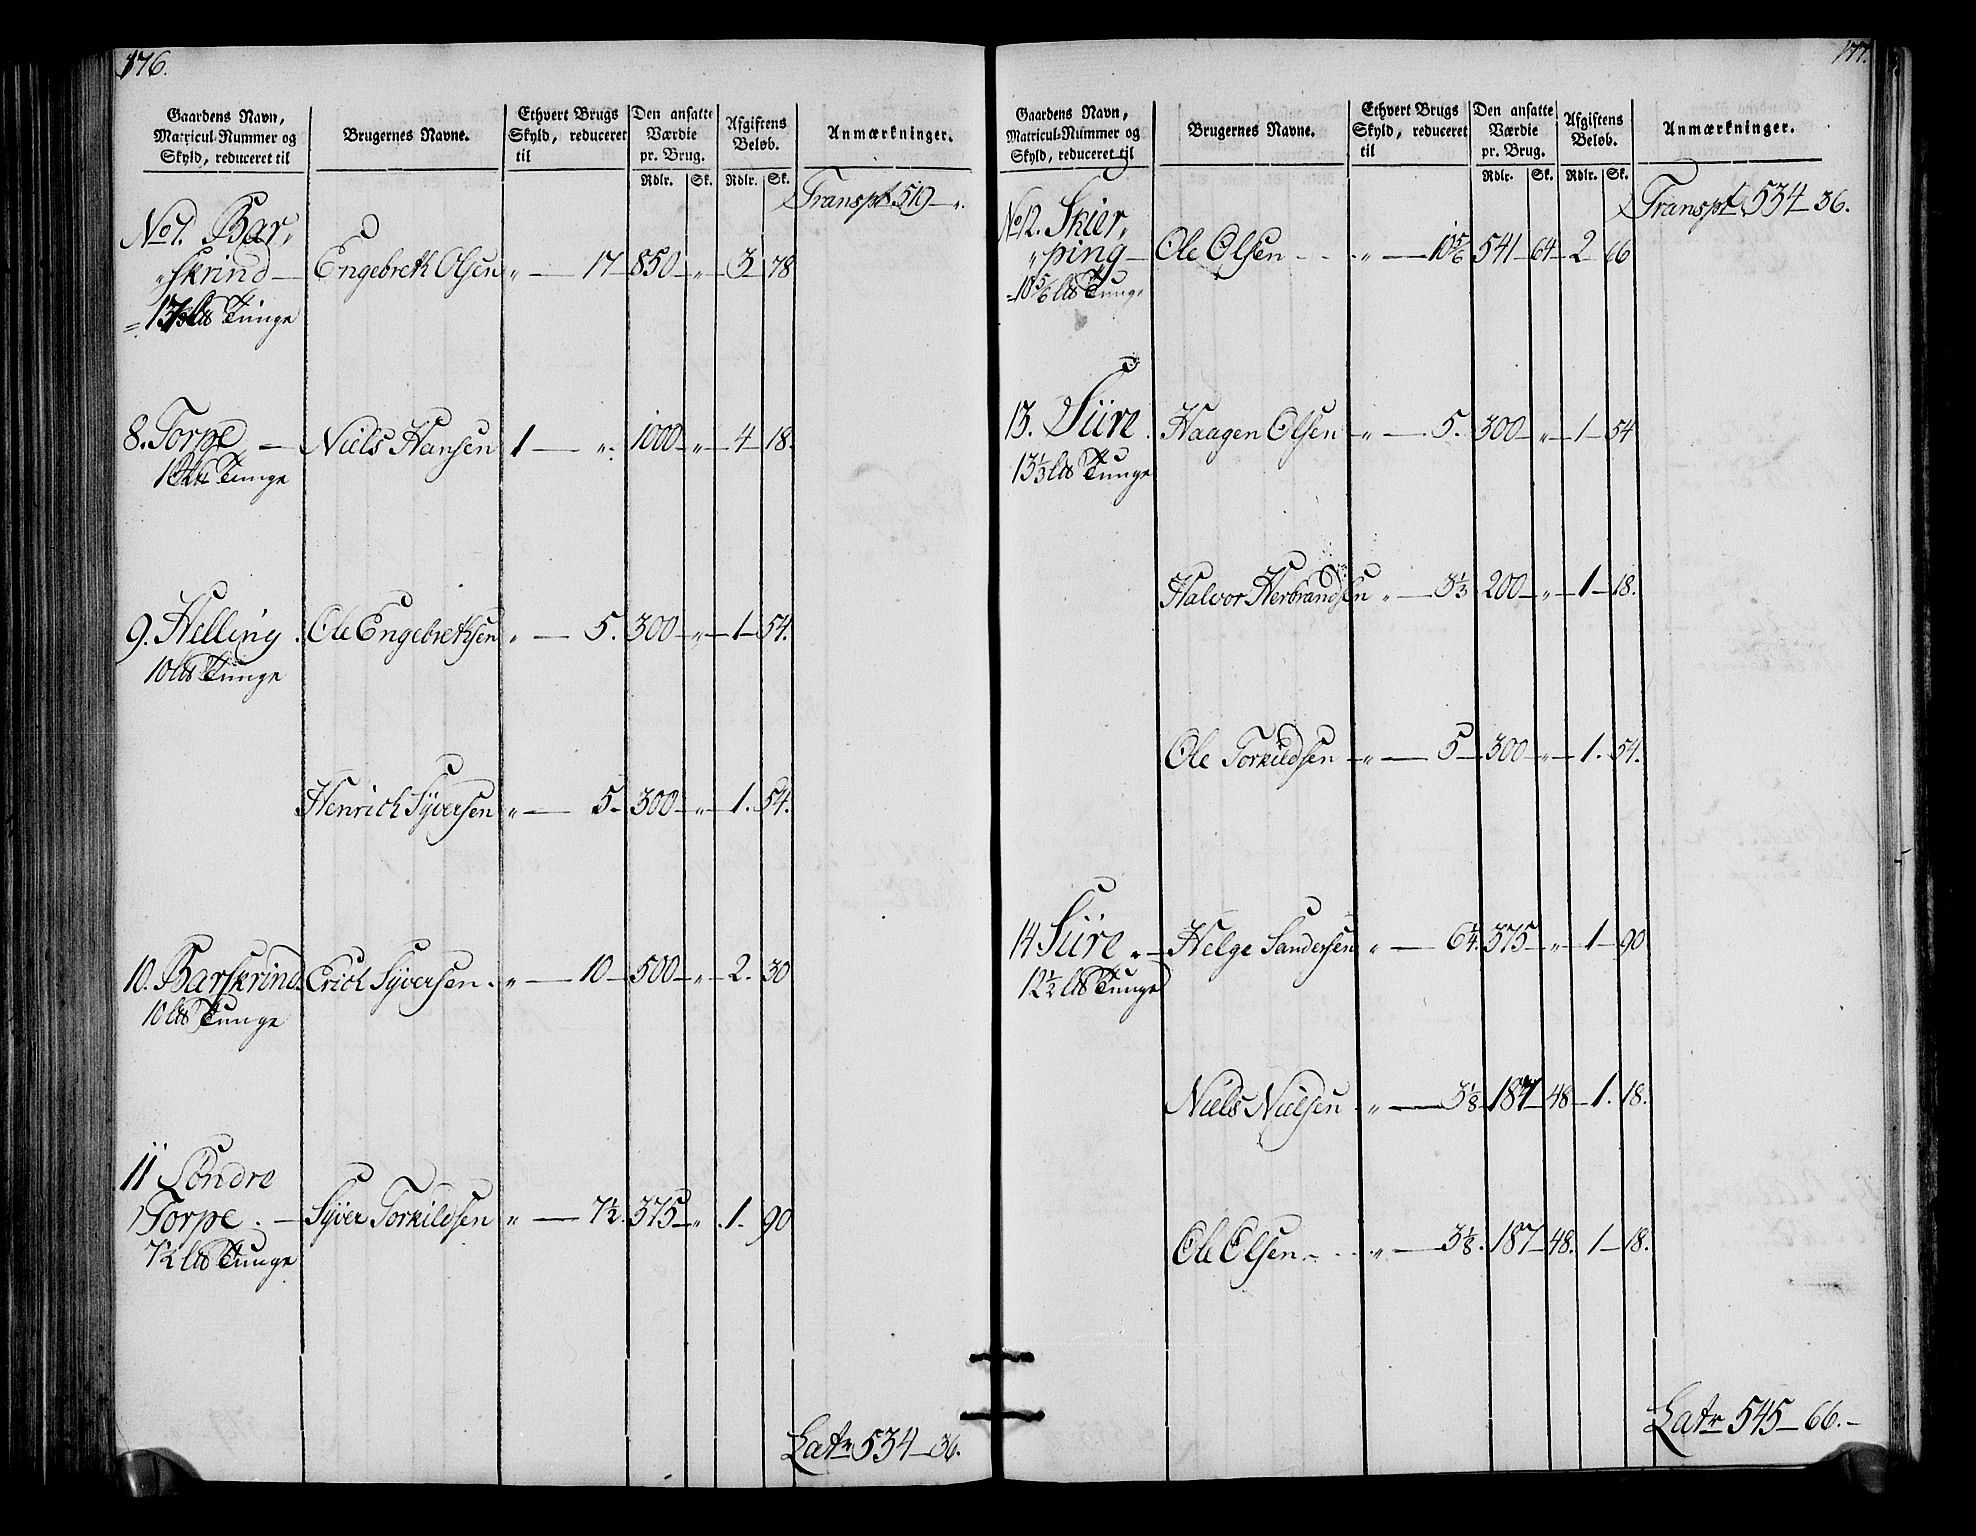 176.
Gaardens Navn,
Matricul-Nummer og
Skyld, reduceret til
Brugernes Navne.
Ethvert Brugs
Skyld, reduceret
til
Den ansatte
Værdie
pr. Brug.
Afgiftens
Beløb.
Anmærkninger.
Rdlr. Sk. Rdlr. Sk.
Transpt 519 — „.
No 7. Bar,
„skrind — Engebreth Olsen „ — 17 — 850 — „ — 3 — 78
= lb Tunge
8. Torpe — Niels Hansen 1 — „. 1000 — „ — 4 — 18.
Tunge
9. Helling. Ole Engebrethsen „ — 5. 300 — „ — 1 — 54.
10 lb Tunge
Henrich Syversen „ — 5 — 300 — „ — 1. 54.
10. Barskrind Erich Syversen. „ — 10 — 500 — „ — 2. 30
10 lb Tunge
11 Söndre
Torpe. — Syver Torkildsen „ — 7½. 375 — „. 1. 90
7½ lb Tunge
Latr 534 — 36.
177.
Gaardens Navn,
Matricul-Nummer og
Skyld, reduceret til
Brugernes Navne.
Ethvert Brugs
Skyld, reduceret
til
Den ansatte
Værdie
pr. Brug.
Afgiftens
Beløb.
Anmærkninger.
Rdlr. Sk. Rdlr. Sk.
Transpt 534 — 36.
No 12. Skier,
„ping — Ole Olsen — „ — 10⅚ 541 — 64 — 2 66
= 10⅚ lb Tunge
13. Süre. Haagen Olsen — „ — 5. 300 — „ — 1 — 54
13⅓ lb Tunge
Halvor Herbrandsen „ — 3⅓ 200 — „ — 1 — 18.
Ole Torkildsen — „ — 5 — 300 — „ — 1. 54.
14 Süre. — Helge Sandersen „ — 6¼. 375 — „ — 1 — 90
12½ lb Tunge
Niels Nielsen — „ — 3⅛ — 187 — 48 — 1. 18.
Ole Olsen — „ — 3⅛. 187 — 48. 1 — 18.
Latr 545 — 66. —